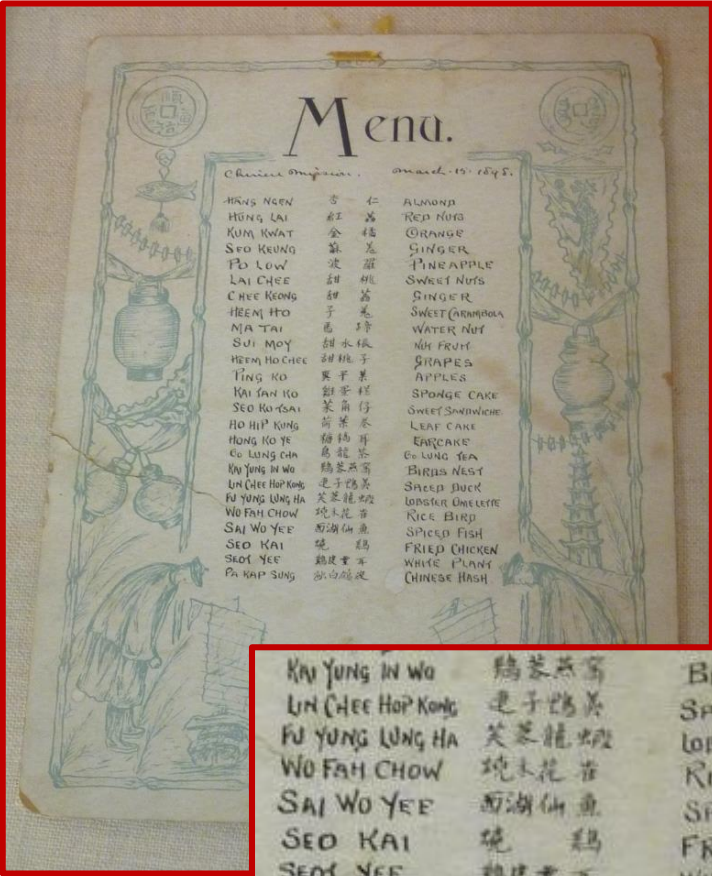 Menu.
Chinese Mission. March. 15. 1895.
HÄNG NGEN 杏仁 ALMOND
HUNG LAI 紅 RED NUTS
KUM KWAT 金橘 ORANGE
SEO KEUNG GINGER
PO LOW 波羅 PINEAPPLE
LAI CHEE 甜桃 SWEET NUTS
CHEE KEONG 甜 GINGER
HEEM HO 子 SWEET CARAMBOLA
MA TAI 馬蹄 WATER NUT
SUI MOY 甜水 NUT FRUIT
HEEM HO CHEE 甜桃子 GRAPES
PING KO 菓 APPLES
KAI TAN KO 雞蛋糕 SPONGE CAKE
SEO KO TSAI 菓角仔 SWEET SANDWICHE
HO HIP KUNG 荷葉 LEAF CAKE
HONG KO YE 糖 耳 EARCAKE
GO LUNG CHA 烏龍茶 GO LUNG TEA
KAI YUNG IN WO 鷄蓉燕窩 BIRDS NEST
LIN CHEE HOP KONG 子鴨羮 SPICED DUCK
FU YUNG LUNG HA 芙蓉龍蝦 LOBSTER OMELETTE
WO FAH CHOW 燒禾花雀 RICE BIRD
SAI WO YEE 西湖仙魚 SPICED FISH
SEO KAI 燒鷄 FRIED CHICKEN
SEOT YEE 耳 WHITE PLANT
PA KAP SUNG 炒白鴿 CHINESE HASH
KAI YUNG IN WO 鷄蓉燕窩
LIN CHEE HOP KONG 子鴨羮
FU YUNG LUNG HA 芙蓉龍蝦
WO FAH CHOW 燒禾花雀
SAI WO YEE 西湖仙魚
SEO KAI 燒鷄
SEOT YEE